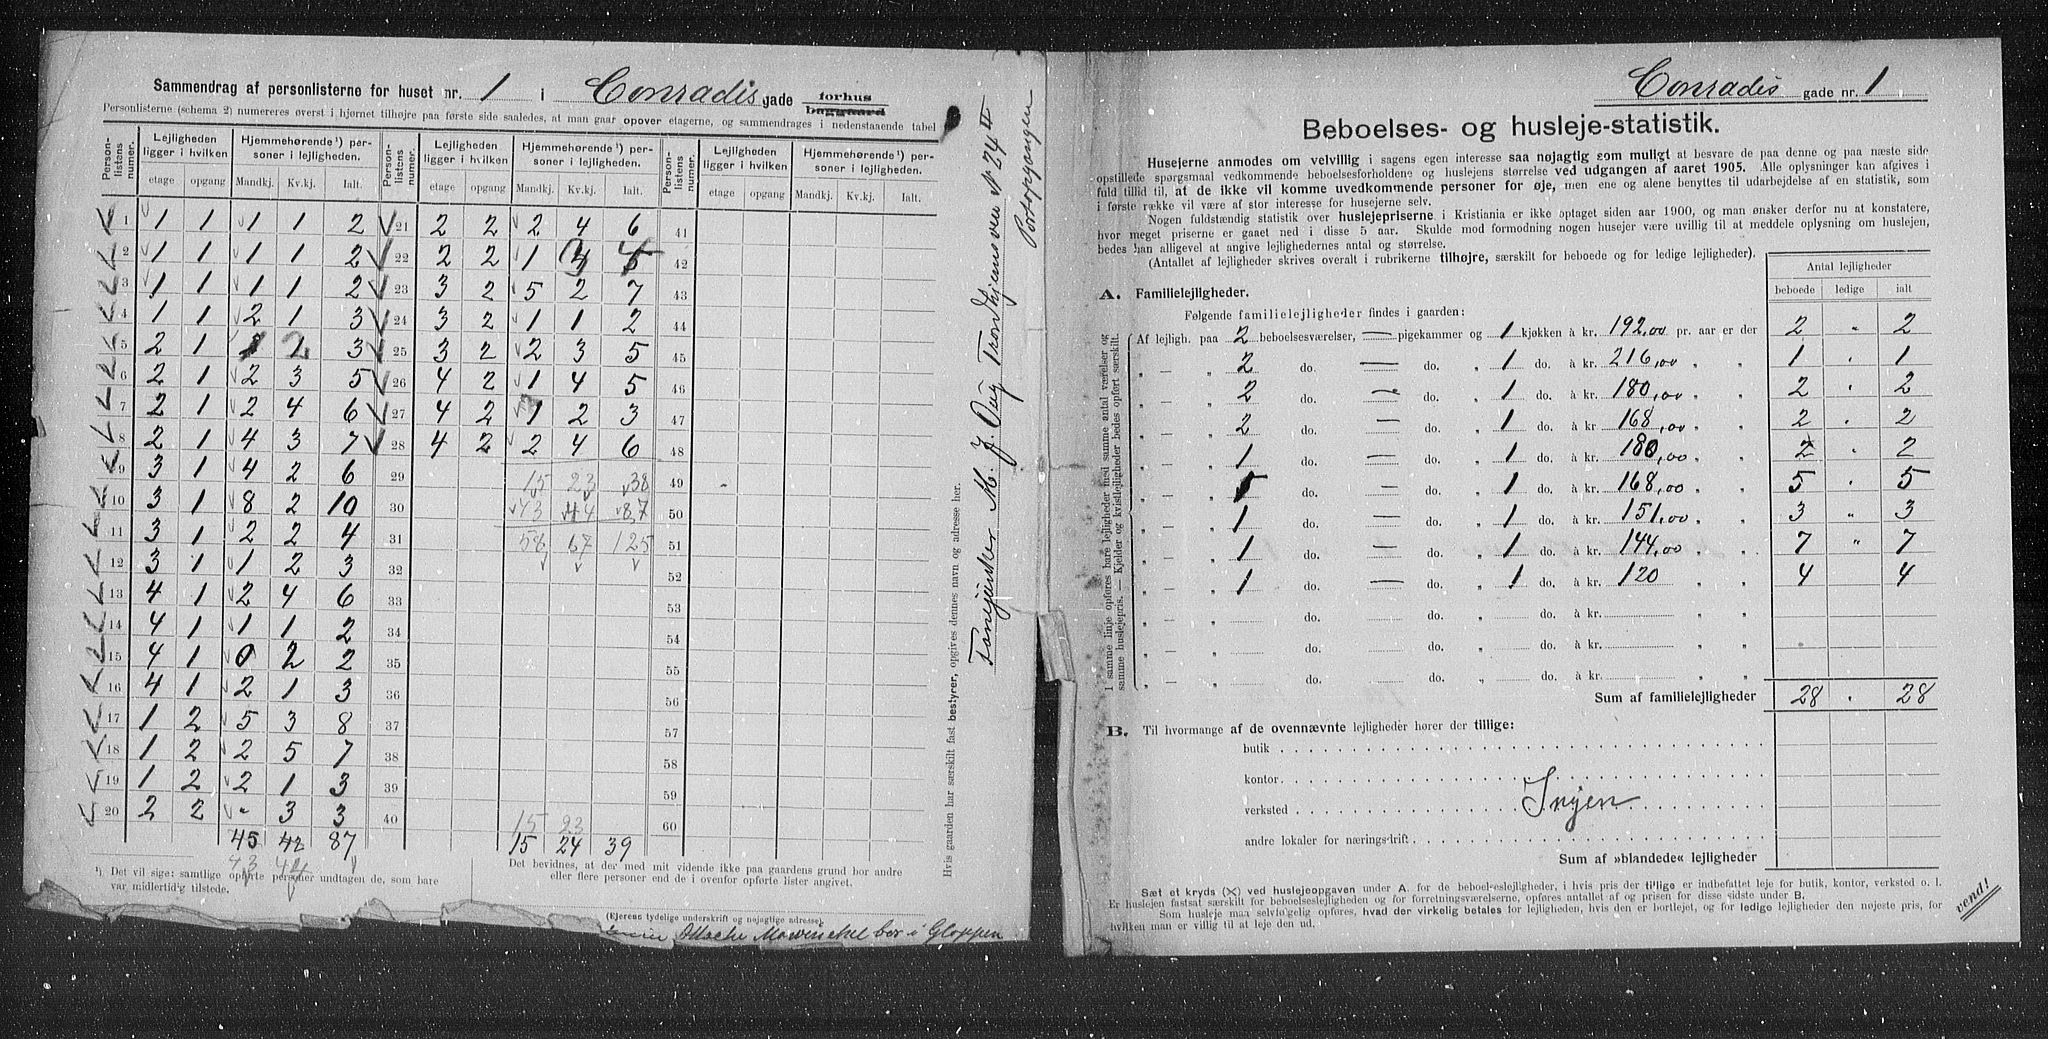 Sammendrag af personlisterne for huset nr. 1 i Conradis gade forhus baggaard
Personlisterne (schema 2) numereres øverst i hjørnet tilhøjre paa første side saaledes, at man gaar opover etagerne, og sammendrages i nedenstaaende tabel
Person-listens numer. Lejligheden ligger i hvilken Hjemmehørende ¹) personer i lejligheden. Person-listens numer. Lejligheden ligger i hvilken Hjemmehørende ¹) personer i lejligheden. Person-listens numer. Lejligheden ligger i hvilken Hjemmehørende ¹) personer i lejligheden.
etage opgang Mandkj. Kv.kj. Ialt. etage opgang Mandkj. Kv.kj. Ialt. etage opgang Mandkj. Kv.kj. Ialt.
1 1 1 1 1 2 21 2 2 2 4 6 41
2 1 1 1 1 2 22 2 2 1 3 4 42
3 1 1 1 1 2 23 3 2 5 2 7 43
4 1 1 2 1 3 24 3 2 1 1 2 44
5 2 1 1 2 3 25 3 2 2 3 5 45
6 2 1 2 3 5 26 4 2 1 4 5 46
7 2 1 2 4 6 27 4 2 1 2 3 47
8 2 1 4 3 7 28 4 2 2 4 6 48
9 3 1 4 2 6 29 15 23 38 49
10 3 1 8 2 10 30 43 44 87 50
11 3 1 2 2 4 31 58 67 125 51
12 3 1 1 2 3 32 52
13 4 1 2 4 6 33 53
14 4 1 1 1 2 34 54
15 4 1 0 2 2 35 55
16 4 1 2 1 3 36 56
17 1 2 5 3 8 37 57
18 1 2 2 5 7 38 58
19 1 2 2 1 3 39 59
20 2 2 " 3 3 40 15 23 60
45 42 87 15 24 39
43 44
¹) Det vil sige: samtlige opførte personer undtagen de, som bare var midlertidig tilstede.
Det bevidnes, at der med mit vidende ikke paa gaardens grund bor andre
eller flere personer end de i ovenfor opførte lister angivet.
(Ejerens tydelige underskrift og nøjagtige adresse).
bor i Gloppen
Hvis gaarden har særskilt fast bestyrer, opgives dennes navn og adresse her.
Fanejunker M. J. Aug Trondhjemsveien № 24 II
Portopgangen
Conradis gade nr. 1
Beboelses- og husleje-statistik.
Husejerne anmodes om velvillig i sagens egen interesse saa nøjagtig som muligt at besvare de paa denne og paa næste side
opstillede spørgsmaal vedkommende beboelsesforholdene og huslejens størrelse ved udgangen af aaret 1905. Alle oplysninger kan afgives i
fuld tillid til, at de ikke vil komme uvedkommende personer for øje, men ene og alene benyttes til udarbejdelse af en statistik, som
i første række vil være af stor interesse for husejerne selv.
Nogen fuldstændig statistik over huslejepriserne i Kristiania er ikke optaget siden aar 1900, og man ønsker derfor nu at konstatere,
hvor meget priserne er gaaet ned i disse 5 aar. Skulde mod formodning nogen husejer være uvillig til at meddele oplysning om huslejen,
bedes han alligevel at angive lejlighedernes antal og størrelse.
(Antallet af lejligheder skrives overalt i rubrikerne tilhøjre, særskilt for beboede og for ledige lejligheder).
Antal lejligheder
beboede ledige ialt
A. Familielejligheder.
Følgende familielejligheder findes i gaarden:
I samme linje opføres bare lejligheder med samme antal værelser og samme huslejepris. — Kjelder og kvistlejligheder bedes opført særskilt.
Af lejligh. paa 2 beboelsesværelser, — pigekammer og 1 kjøkken à kr. 192,00 pr. aar er der 2 " 2
" — " 2 do. — do. " 1 do. à kr. 216,00 " " 1 " 1
" — " 2 do. — do. " 1 do. à kr. 180,00 " " 2 " 2
" — " 2 do. — do. " 1 do. à kr. 168,00 " " 2 " 2
" — " 1 do. — do. " 1 do. à kr. 180,00 " " 2 " 2
" — " 1 do. — do. " 1 do. à kr. 168,00 " " 5 " 5
" — " 1 do. — do. " 1 do. à kr. 151,00 " " 3 " 3
" — " 1 do. — do. " 1 do. à kr. 144,00 " " 7 " 7
" — " 1 do. — do. " 1 do. à kr. 120 " " 4 4
" — " do. do. " do. à kr. " "
" — " do. do. " do. à kr. " "
" — " do. do. " do. à kr. " "
Sum af familielejligheder 28 " 28
B. Til hvormange af de ovennævnte lejligheder hører der tillige:
butik
kontor
verksted Ingen
andre lokaler for næringsdrift
Sum af »blandede« lejligheder
Sæt et kryds (X) ved huslejeopgaven under A. for de beboelseslejligheder, i hvis pris der tillige er indbefattet leje for butik, kontor, verksted o. l.
Er huslejen fastsat særskilt for beboelseslejligheden og for forretningsværelserne, opføres antallet af og prisen for disse sidste under B.
Som husleje maa selvfølgelig opføres, hvad der virkelig betales for lejligheden, hvis den er bortlejet, og for ledige lejligheder den nøjeste pris, for
hvilken man er villig til at leje den ud.
vend!